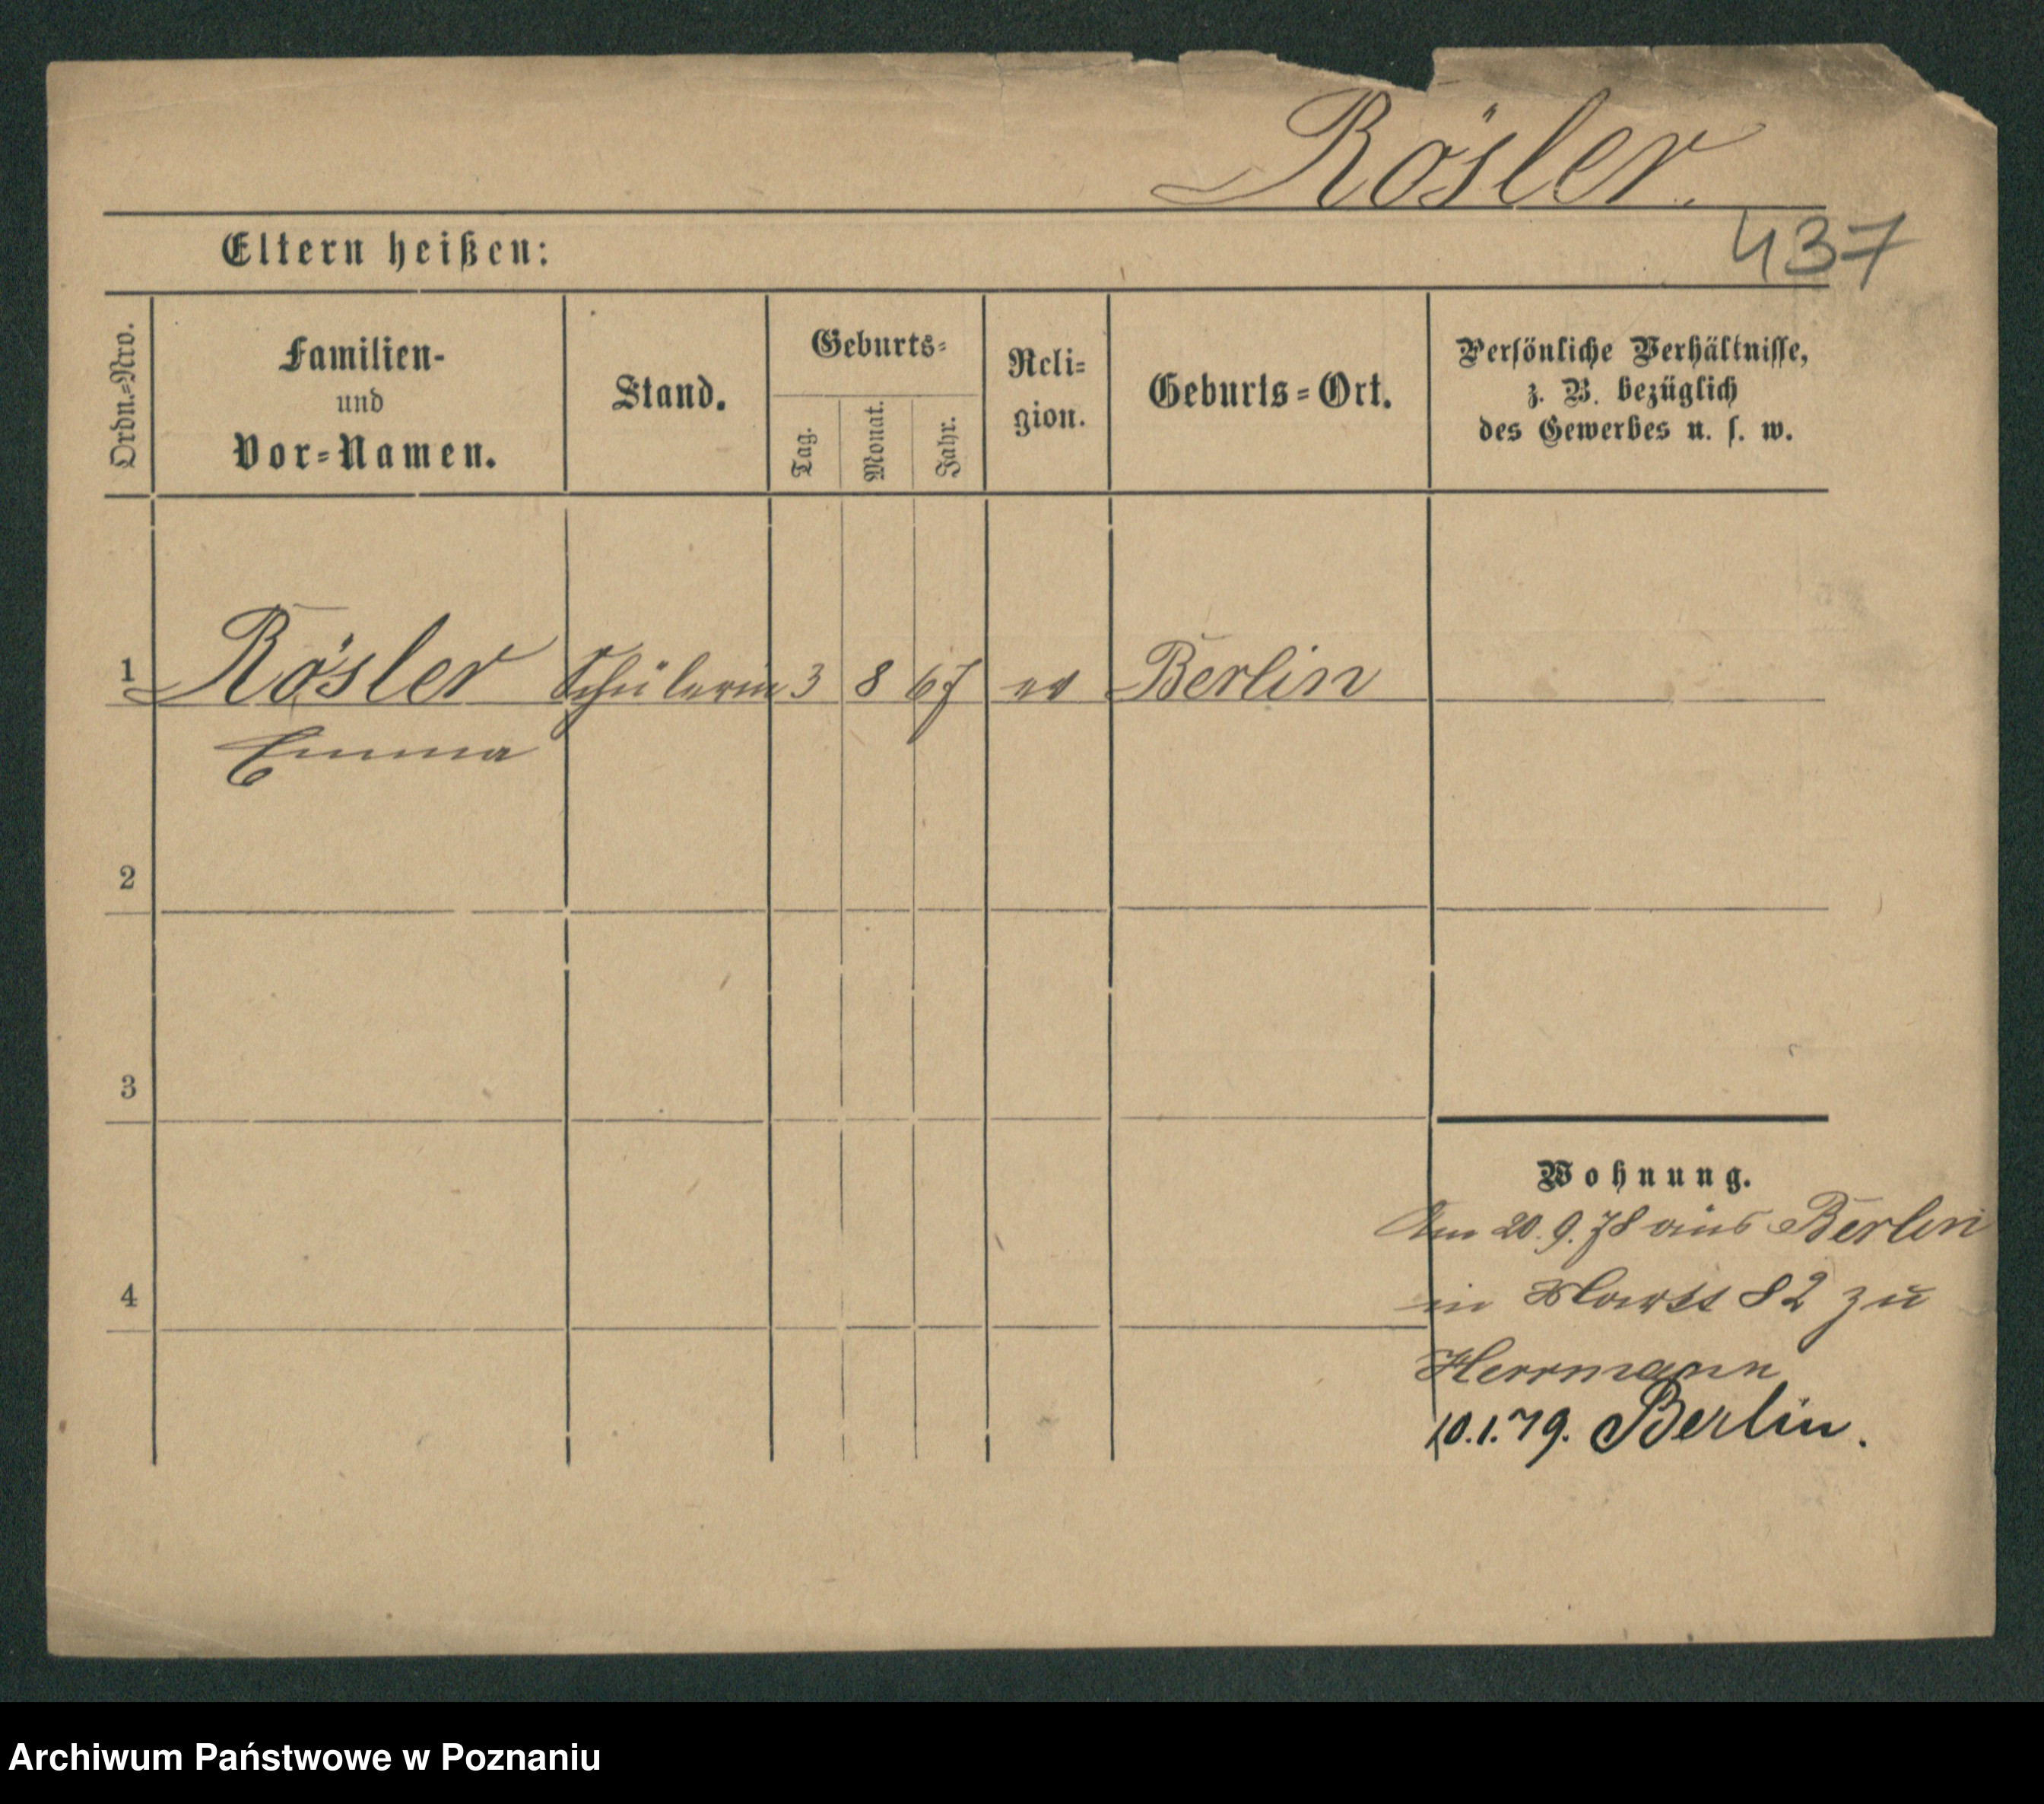 Rösler.
437
Eltern heißen:
Ordn.=Nro.
Familien-
und
Vor=Namen.
Stand.
Geburts=
Tag.
Monat.
Jahr.
Reli=
gion.
Geburts=Ort.
Persönliche Verhältnisse,
z. B. bezüglich
des Gewerbes u. s. w.
1 Rösler Schülerin 3 8 67 ev Berlin
Emma
2
3
4
Wohnung.
Am 20.9.78 aus Berlin
in 82 zu
Herrmann
10.1.79. Berlin.
Archiwum Państwowe w Poznaniu